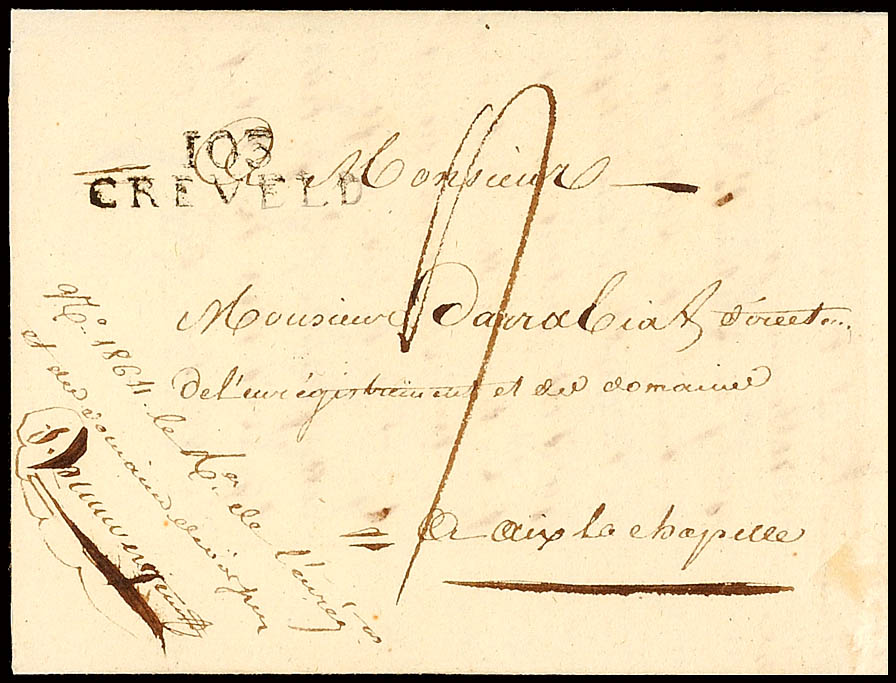 103
CREVELD
Monsieur
Monsieur Darrabiat, direct...
de l'enrégistrement et des domaines
a aix la chapelle
N.° 1864. le R.er de l'enrég
et des domaines